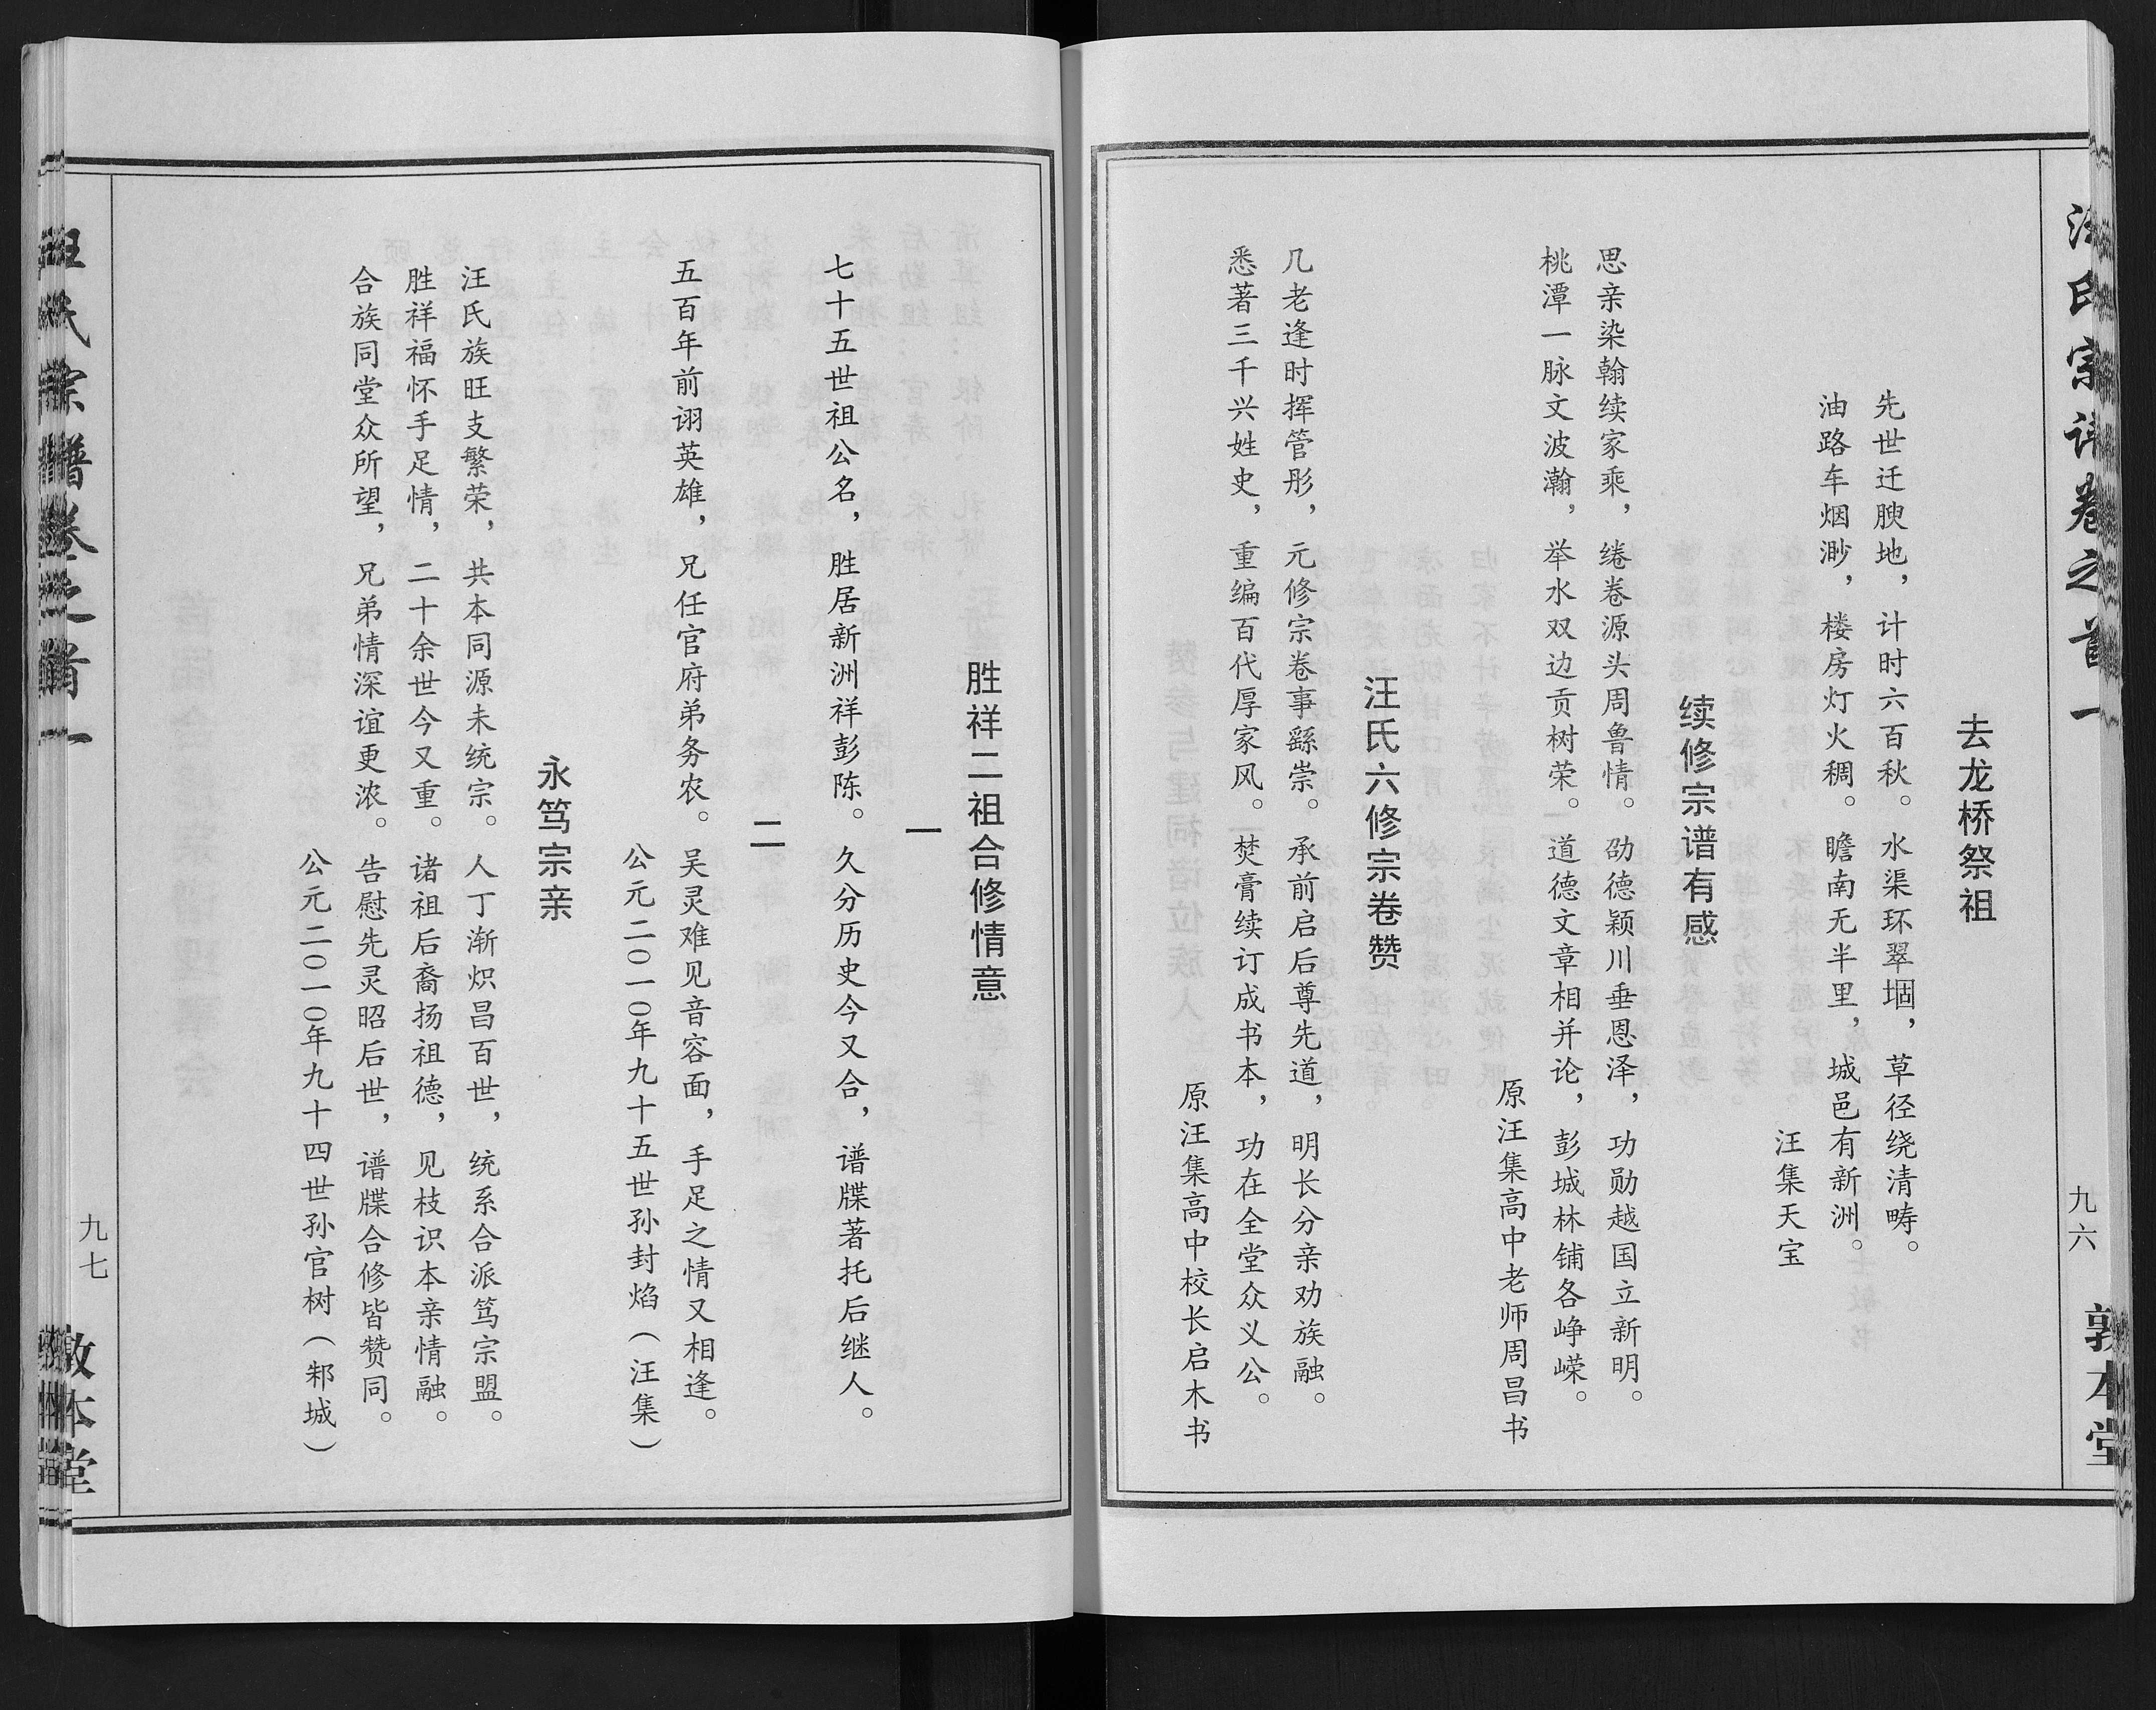 汪氏宗谱卷之首一
九六
敦本堂
去龙桥祭祖
先世迁腴地，计时六百秋。水渠环翠堌，草径绕清畴。
油路车烟渺，楼房灯火稠。瞻南无半里，城邑有新洲。
汪集天宝
续修宗谱有感
思亲染翰续家乘，绻卷源头周鲁情。劭德颖川垂恩泽，功勋越国立新明。
桃潭一脉文波瀚，举水双边贡树荣。道德文章相并论，彭城林铺各峥嵘。
原汪集高中老师周昌书
汪氏六修宗卷赞
几老逢时挥管彤，元修宗卷事繇崇。承前启后尊先道，明长分亲劝族融。
悉著三千兴姓史，重编百代厚家风。焚膏续订成书本，功在全堂众义公。
原汪集高中校长启木书
胜祥二祖合修情意
一
七十五世祖公名，胜居新洲祥彭陈。久分历史今又合，谱牒著托后继人。
二
五百年前诩英雄，兄任官府弟务农。吴灵难见音容面，手足之情又相逢。
公元二〇一〇年九十五世孙封焰（汪集）
永笃宗亲
汪氏族旺支繁荣，共本同源未统宗。人丁渐炽昌百世，统系合派笃宗盟。
胜祥福怀手足情，二十余世今又重。诸祖后裔扬祖德，见枝识本亲情融。
合族同堂众所望，兄弟情深谊更浓。告慰先灵昭后世，谱牒合修皆赞同。
公元二〇一〇年九十四世孙官树（邾城）
汪氏宗谱卷之首一
九七
敦本堂